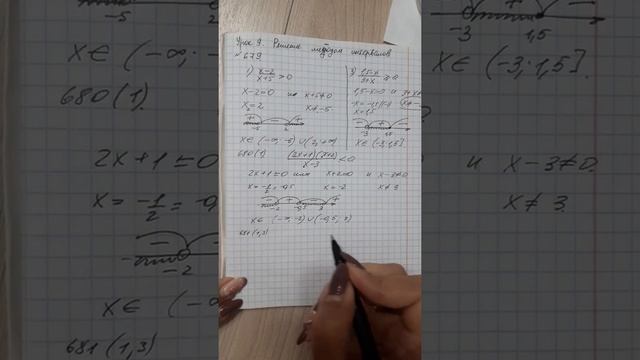 Урок 9. Решение методом интервалов
№679
1) x-2/x+5 > 0
3) 1,5-x/3+x ≥ 0
x-2=0 и x+5≠0
x=2 x≠-5
1,5-x=0 и
x=1,5
+ - +
-5 2
-3 1,5
x∈(-∞;-5)∪(2;+∞)
x∈(-3;1,5]
680(1) (2x+1)(x+2)/x-3 < 0
2x+1=0 или x+2=0 и x-3≠0
x=-1/2=-0,5 x=-2 x≠3
- + - +
-2 -0,5 3
x∈(-∞;-2)∪(-0,5;3)
681(1,3)
-5
x∈(-∞;-
680(1).
2x+1=0
x=-1/2=
-2
x∈(-∞
681(1,3)
-3 1,5
x∈(-3;1,5].
и x-3≠0.
x≠3